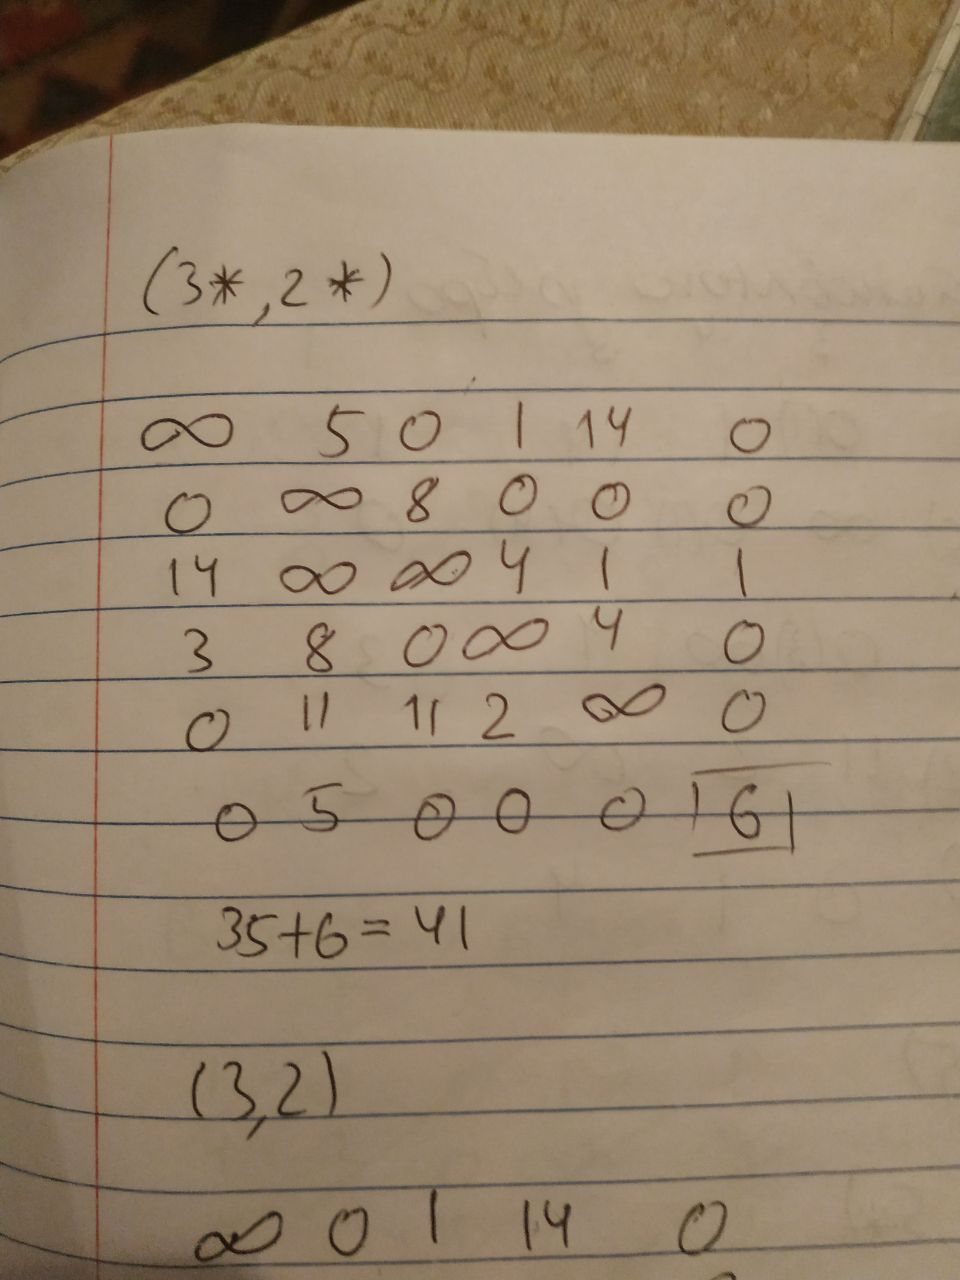 (3*,2*)
∞ 5 0 1 14 0
0 ∞ 8 0 0 0
14 ∞ ∞ 4 1 1
3 8 0 ∞ 4 0
0 11 11 2 ∞ 0
0 5 0 0 0 |6|
35+6=41
(3,2)
∞ 0 1 14 0